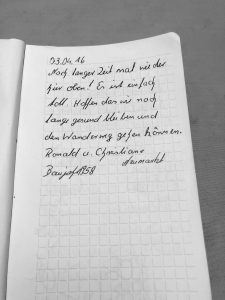 03.04.16
Nach langer Zeit mal wieder
hier oben! Es ist einfach
toll. Hoffen das wir noch
lange gesund bleiben und
den Wanderweg gehen können.
Ronald u. Christiane
Neumarkt
1958